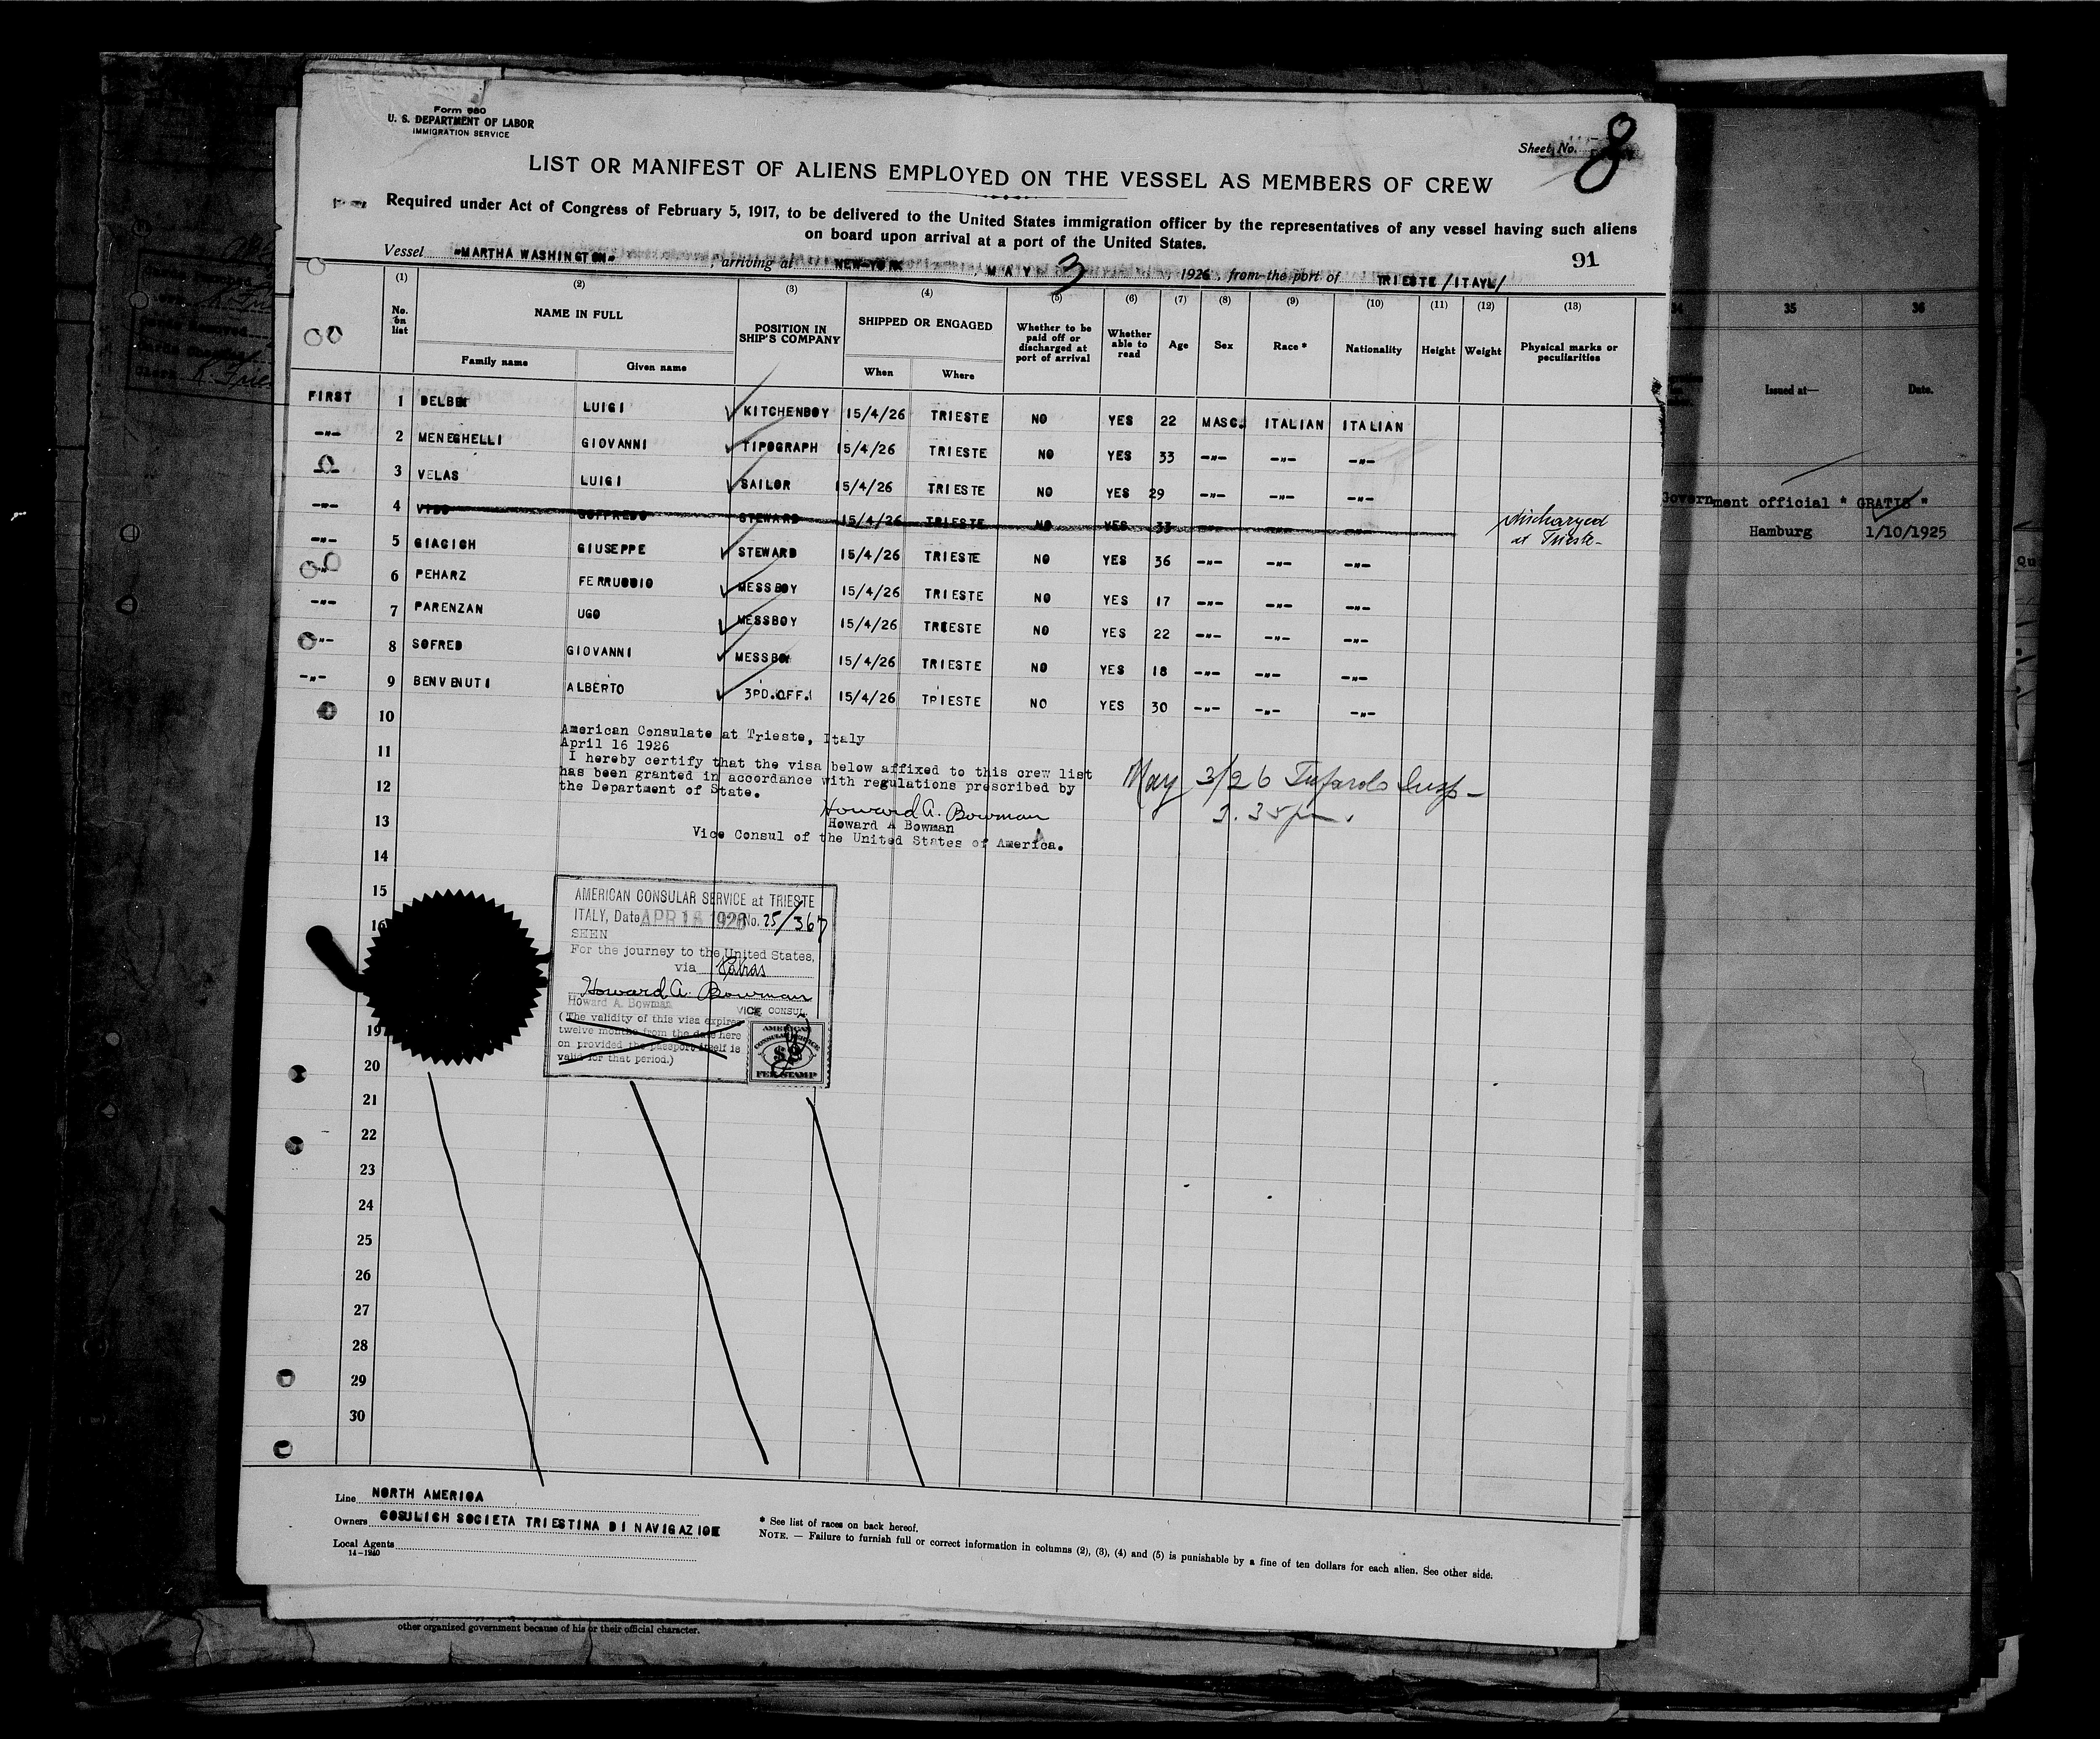 Form 680
U. S. DEPARTMENT OF LABOR
IMMIGRATION SERVICE
Sheet No. 8
LIST OR MANIFEST OF ALIENS EMPLOYED ON THE VESSEL AS MEMBERS OF CREW
Required under Act of Congress of February 5, 1917, to be delivered to the United States immigration officer by the representatives of any vessel having such aliens
on board upon arrival at a port of the United States.
91
Vessel "MARTHA WASHINGTON", arriving at NEW-YORK MAY 3, 1926, from the port of TRIESTE /ITAYL/
(1) (2) (3) (4) (5) (6) (7) (8) (9) (10) (11) (12) (13)
No. on list NAME IN FULL Family name Given name POSITION IN SHIP'S COMPANY SHIPPED OR ENGAGED When Where Whether to be paid off or discharged at port of arrival Whether able to read Age Sex Race * Nationality Height Weight Physical marks or peculiarities
FIRST 1 LUIGI KITCHENBOY 15/4/26 TRIESTE NO YES 22 MASC. ITALIAN ITALIAN
-"- 2 MENEGHELLI GIOVANNI TIPOGRAPH 15/4/26 TRIESTE NO YES 33 -"- -"- -"-
3 VELAS LUIGI SAILOR 15/4/26 TRIESTE NO YES 29 -"- -"- -"-
-"- 4 GOFFREDO STEWARD 15/4/26 TRIESTE NO YES 33 -"- -"- -"- discharged
at Trieste-
-"- 5 GIAGICH GIUSEPPE STEWARD 15/4/26 TRIESTE NO YES 36 -"- -"- -"-
-"- 6 PEHARZ MESSBOY 15/4/26 TRIESTE NO YES 17 -"- -"- -"-
-"- 7 PARENZAN UGO MESSBOY 15/4/26 TRIESTE NO YES 22 -"- -"- -"-
-"- 8 SOFRED GIOVANNI MESSBOY 15/4/26 TRIESTE NO YES 18 -"- -"- -"-
-"- 9 BENVENUTI ALBERTO 3RD.OFF. 15/4/26 TRIESTE NO YES 30 -"- -"- -"-
10
American Consulate at Trieste, Italy
April 16 1926
11
I hereby certify that the visa below affixed to this crew list
has been granted in accordance with regulations prescribed by
12
the Department of State.
May 3/26 Insp-
3.35pm.
Howard A. Bowman
13
Howard A Bowman
Vice Consul of the United States of America.
14
15
AMERICAN CONSULAR SERVICE at TRIESTE
ITALY, Date APR 16 1926 No. 25/367
16
SEEN
For the journey to the United States,
via Patras
Howard A. Bowman
Howard A. Bowman
VICE CONSUL
(The validity of this visa expires
twelve months from the date here
on provided the passport itself is
valid for that period.)
AMERICAN
CONSULAR SERVICE
$2
FEE STAMP
19
20
21
22
23
24
25
26
27
28
29
30
Line NORTH AMERICA
Owners COSULICH SOCIETA TRIESTINA DI NAVIGAZIONE
Local Agents
14-1240
* See list of races on back hereof.
NOTE. — Failure to furnish full or correct information in columns (2), (3), (4) and (5) is punishable by a fine of ten dollars for each alien. See other side.
other organized government because of his or their official character.
34 35 36
Issued at— Date.
Government official " GRATIS "
Hamburg 1/10/1925